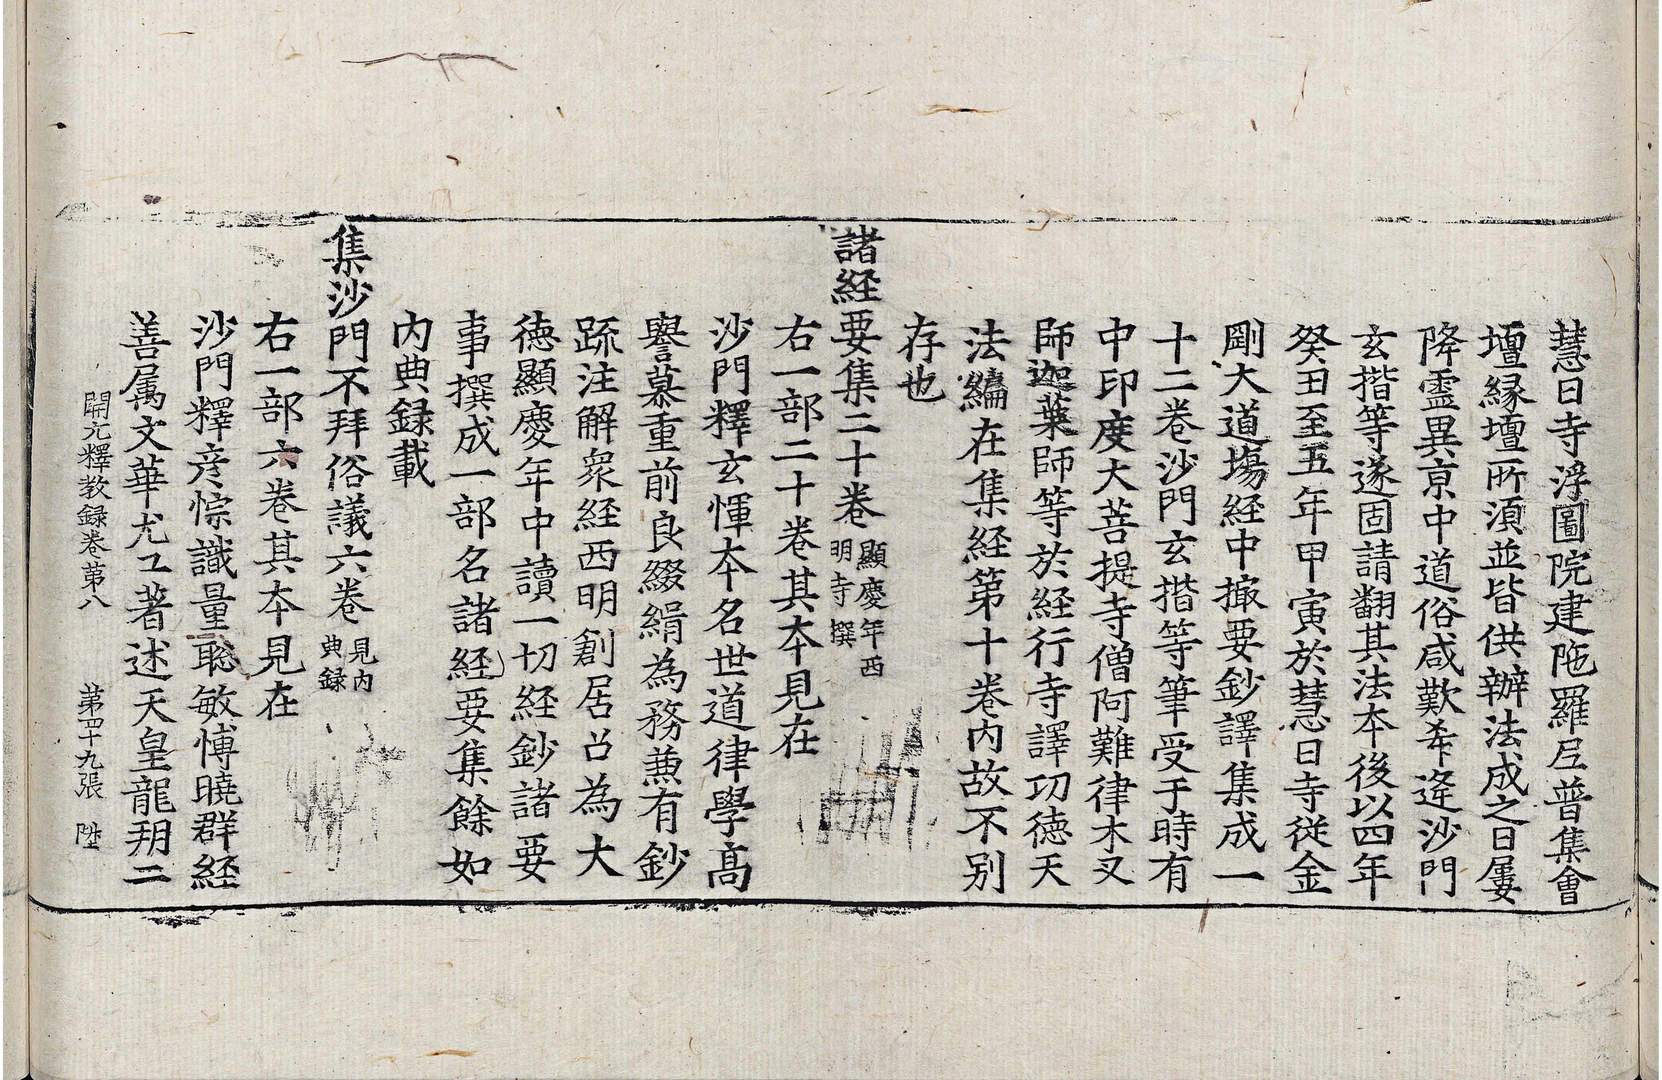 慧日寺浮圖院建陁羅尼普集會
壇縁壇所湏並皆供辦法成之日屢
降靈異京中道俗咸歎希逄沙門
玄揩等遂固請翻其法本後以四年
癸丑至五年甲寅於慧日寺従金
剛大道塲経中撮要鈔譯集成一
十二巻沙門玄揩等筆受于時有
中印度大菩提寺僧阿難律木叉
師迦葉師等於経行寺譯㓛德天
法編在集経第十巻内故不别
存也
諸経要集二十巻 顯慶年西
明寺撰
右一部二十巻其夲見在
沙門釋玄惲夲名世道律學髙
譽慕重前良綴緝為務兼有鈔
䟽注解衆経西明創居召為大
德顯慶年中讀一切経鈔諸要
事撰成一部名諸経要集餘如
内典録載
集沙門不拜俗議六巻 見内
典録
右一部六巻其夲見在
沙門釋彦悰識量聡敏愽曉群経
善属文華尤工著述天皇龍朔二
開元釋教録巻第八 第四十九張 陞